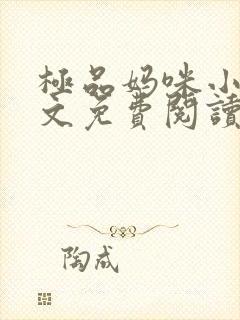 極品妈咪小
文免費閱讀
陶成